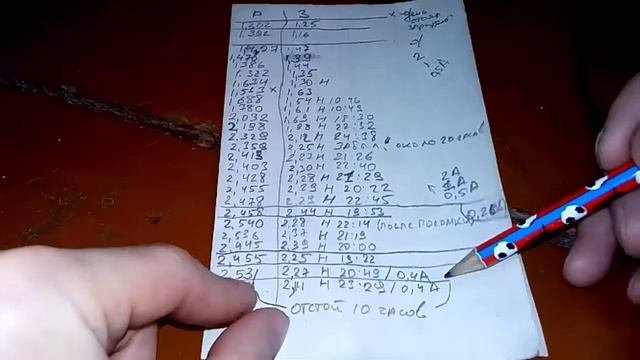 Р З
1,302 1,25 х - день
1,392 1,16 отстоя
1,47
1,478 1,39
1,386 1,44
1,322 1,35 0,5А
1,634 1,30 Н
1,523 х 1,63
1,688 1,54 Н 10:46
1,780 1,61 Н 10:49
2,032 1,69 Н 18:30
2,198 1,88 Н 22:32
2,329 2,12 Н 24:38
2,359 2,25 Н забыл, около 20 часов
2,419 2,23 Н 21:26
2,403 2,30 Н 22:40
2,428 2,28 Н 21:29 2А
2,455 2,29 Н 20:22
2,478 2,29 Н 22:45 0,5А
2,458 2,44 Н 19:53
2,540 2,28 Н 22:14 (после поломки)
2,536 2,37 Н 21:19
2,445 2,39 Н 20:00
2,455 2,25 Н 19:22
2,531 2,27 Н 20:49 / 0,4А
Н 23:29 / 0,4А
отстой 10 часов